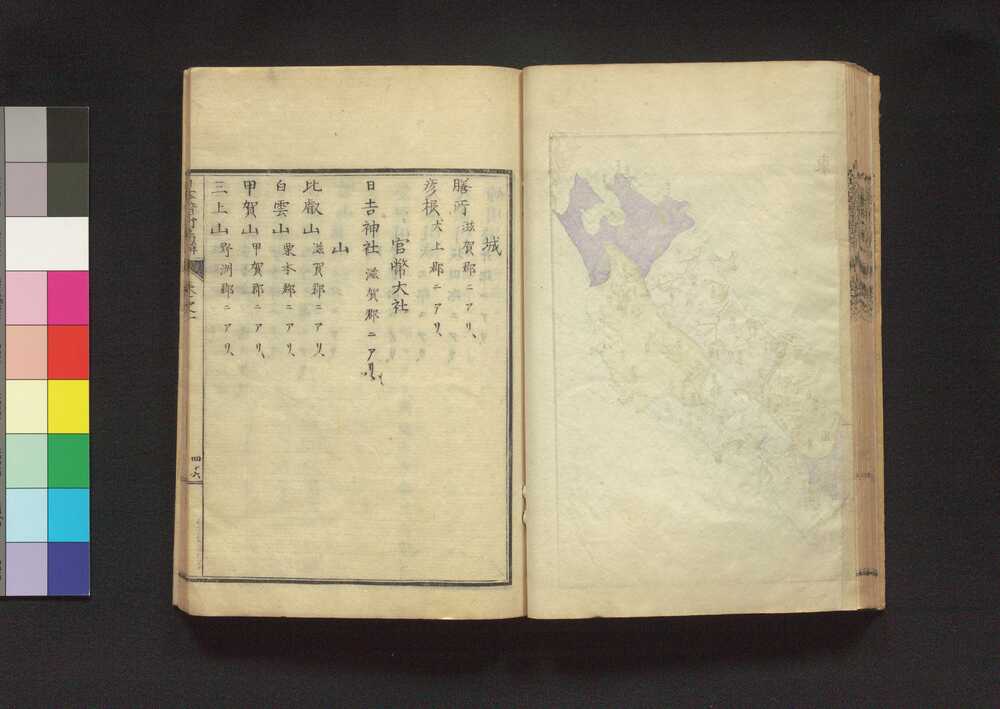 城
膳所 滋賀郡ニアリ、
彦根 犬上郡ニアリ、
官幣大社
日吉神社 滋賀郡ニアリ、
山
比叡山 滋賀郡ニアリ、
白雲山 栗本郡ニアリ、
甲賀山 甲賀郡ニアリ、
三上山 野洲郡ニアリ、
四十六